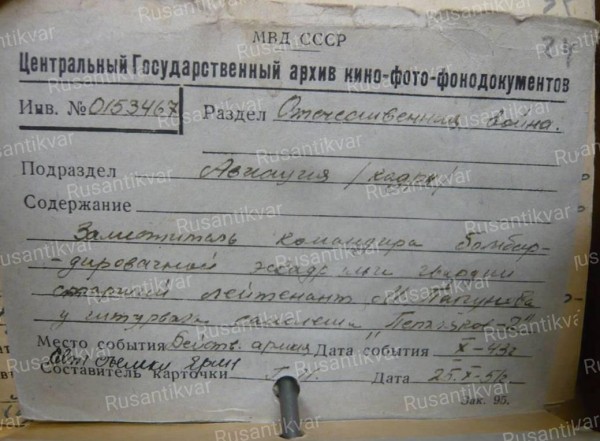 МВД СССР
Центральный Государственный архив кино-фото-фонодокументов
Инв. № 0153467 Раздел Отечественная война.
Подраздел Авиация /кадры/
Содержание
Заместитель командира бомбар-
дировочной эскадрильи гвардии
старший лейтенант
у штурвала самолета "Петляков-2"
Место события Действ. армия Дата события X-43г
Автор съемки
Составитель карточки Дата 25.X-51г
Зак. 95.
Rusantikvar